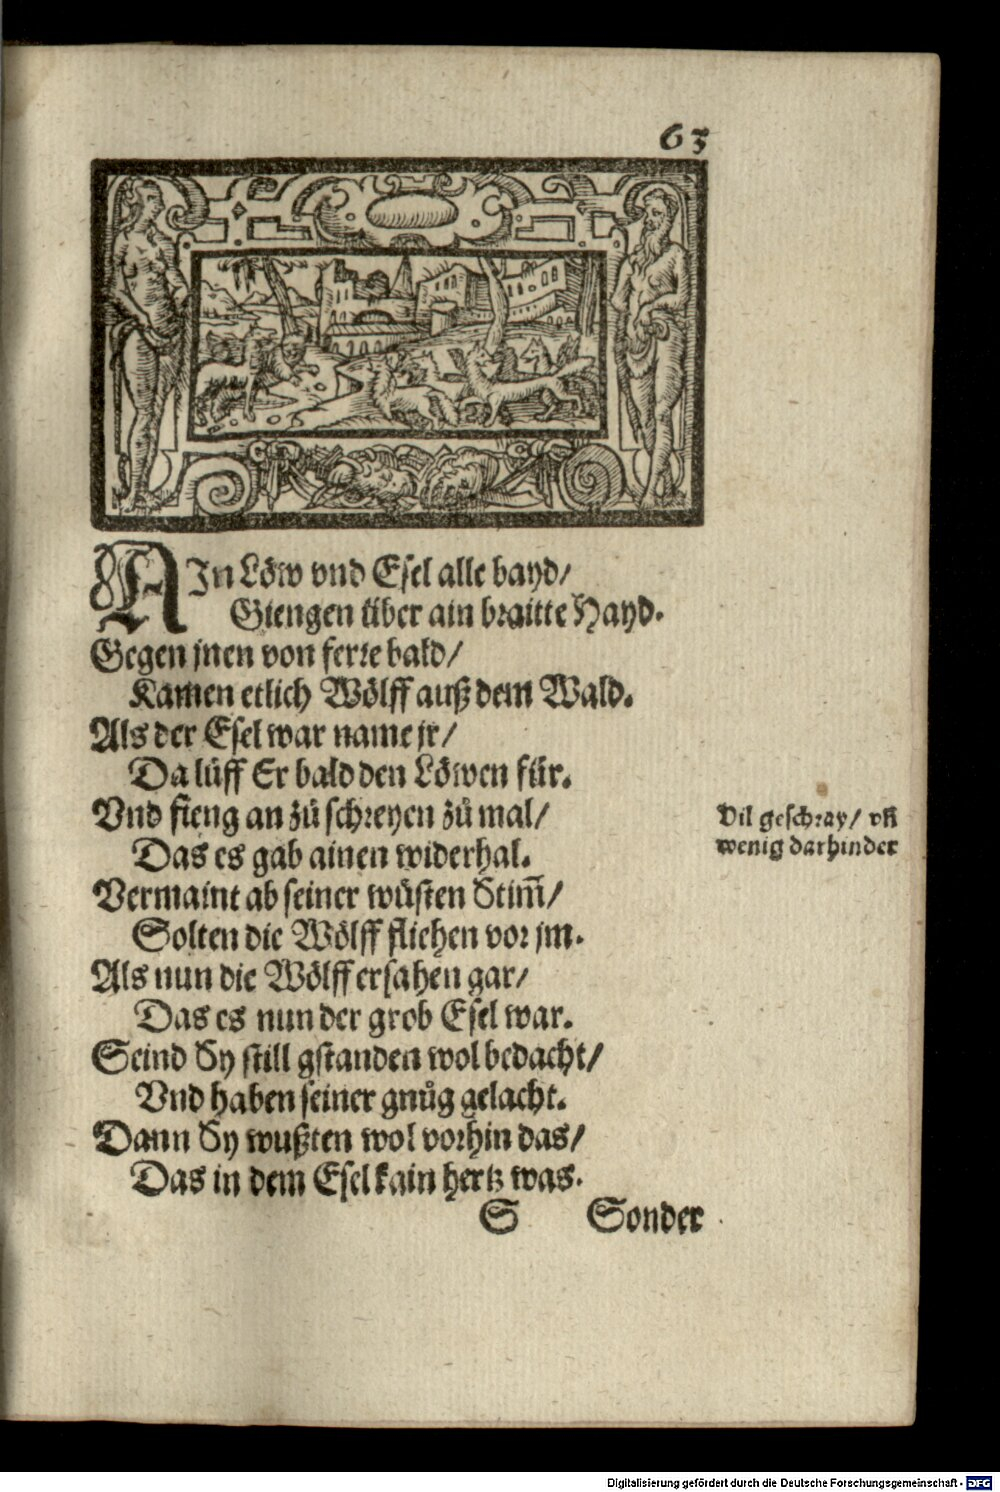 63
AIn Löw vnd Esel alle bayd/
Giengen über ain braitte Hayd.
Gegen jnen von ferre bald/
Kamen etlich Wölff auß dem Wald.
Als der Esel war name jr/
Da lüff Er bald den Löwen für.
Vnd fieng an zů schreyen zů mal/
Das es gab ainen widerhal.
Vermaint ab seiner wüsten Stim̃/
Solten die Wölff fliehen vor jm.
Als nun die Wölff ersahen gar/
Das es nun der grob Esel war.
Seind Sy still gstanden wol bedacht/
Vnd haben seiner gnůg gelacht.
Dann Sy wußten wol vorhin das/
Das in dem Esel kain hertz was.
Vil geschray/ vñ
wenig darhinder
S Sonder
Digitalisierung gefördert durch die Deutsche Forschungsgemeinschaft - DFG